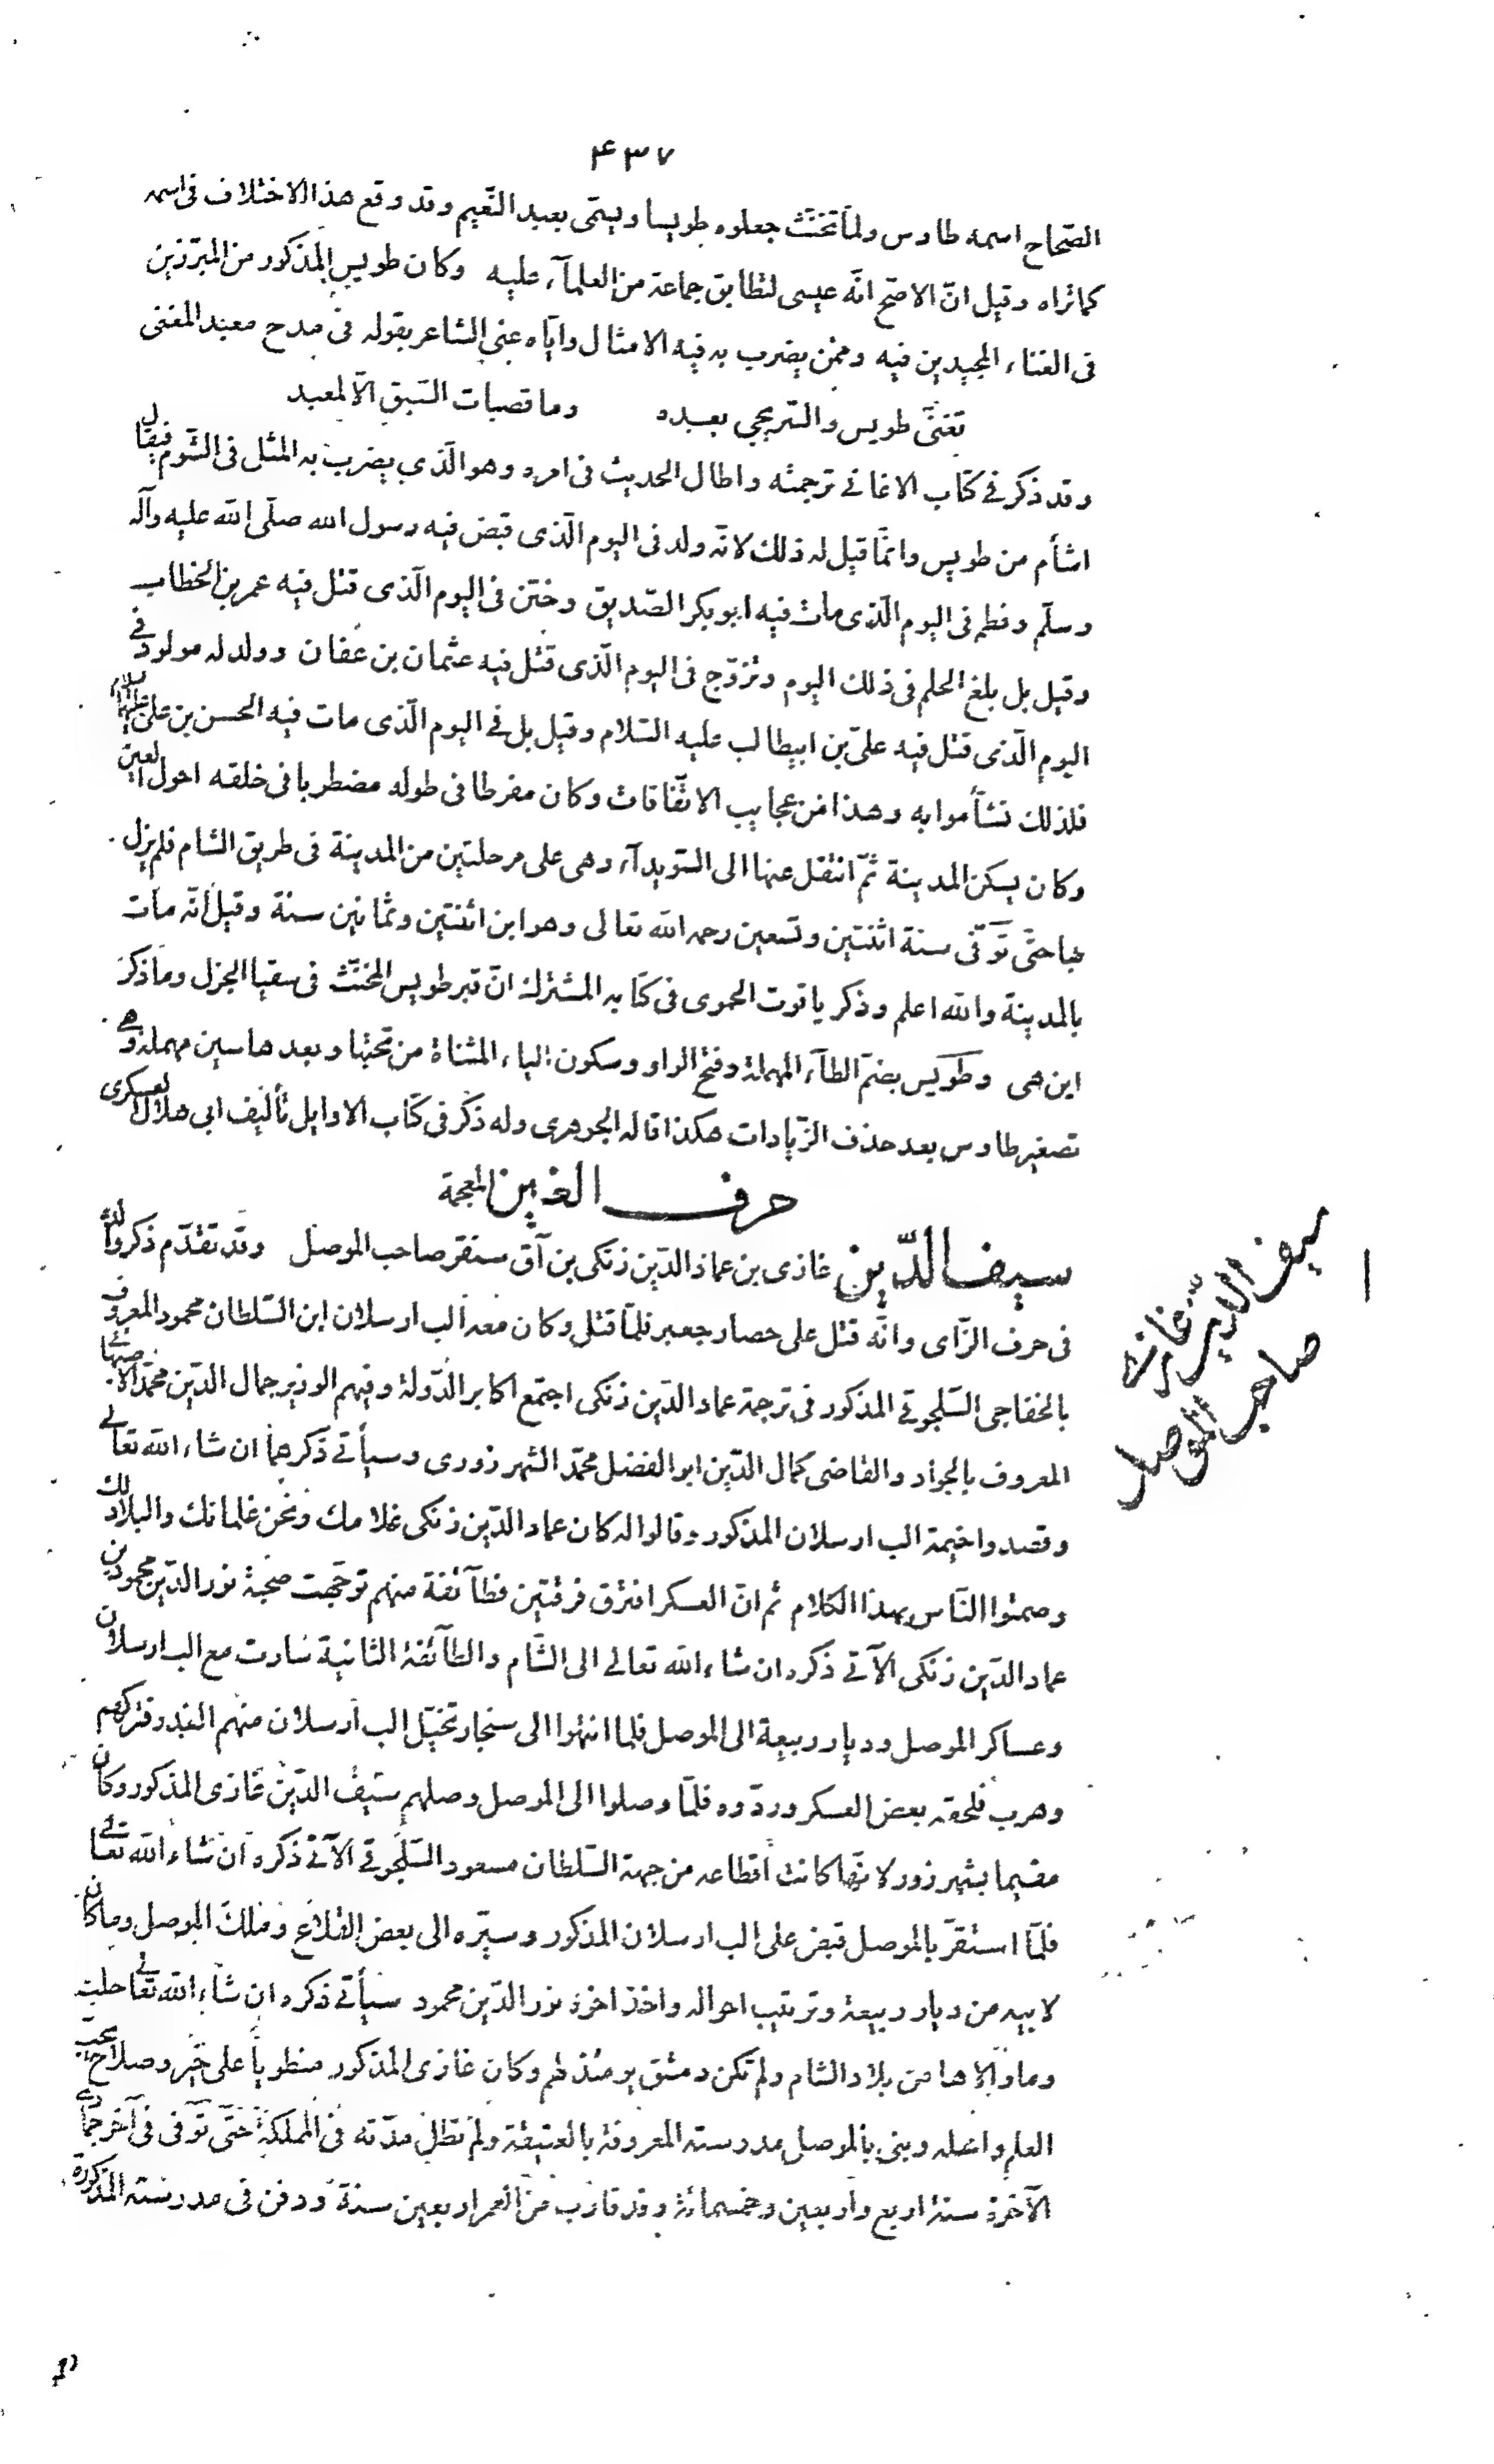 ۴۳۷
الصّحاح اسمه طاوس ولمّا تخنّث جعلوه طويسا ويسمّى بعبد النّعيم وقد وقع هذا الاختلاف فى اسمه
كما تراه وقيل انّ الاصحّ انّه عيسى لتطابق جماعة من العلمآء عليه وكان طويس المذكور من المبرّزين
فى الغناء المجيدين فيه وممّن يضرب به فيه الامثال وايّاه عنى الشاعر بقوله فى مدح معبد المغنى
تغنّى طويس والسّريجى بعده وما قصبات السّبق الّا لمعبد
وقد ذكر فى كتاب الاغانى ترجمته واطال الحديث فى امره وهو الّذى يضرب به المثل فى الشّوم فيقال
اشأم من طويس وانّما قيل له ذلك لانّه ولد فى اليوم الّذى قبض فيه رسول الله صلّى الله عليه وآله
وسلّم وفطم فى اليوم الّذى مات فيه ابوبكر الصّديق وختن فى اليوم الّذى قتل فيه عمر بن الخطاب
وقيل بل بلغ الحلم فى ذلك اليوم وتزوّج فى اليوم الّذى قتل فيه عثمان بن عفان وولد له مولود فى
اليوم الّذى قتل فيه علىّ بن ابيطالب عليه السّلام وقيل بل فى اليوم الّذى مات فيه الحسن بن على عليهما السلام
فلذلك تشأموا به وهذا من عجايب الاتّفاقات وكان مفرطا فى طوله مضطربا فى خلقه احول العين
وكان يسكن المدينة ثمّ انتقل عنها الى السّويدآء وهى على مرحلتين من المدينة فى طريق الشام فلم يزل
بها حتّى توّفّى سنة اثنتين وتسعين رحمه الله تعالى وهو ابن اثنتين وثمانين سنة وقيل انّه مات
بالمدينة والله اعلم وذكر ياقوت الحموى فى كتابه المشترك انّ قبر طويس المخنّث فى سقيا الجزل وما ذكر
اين هى وطُوَيس بضمّ الطآء المهملة وفتح الواو وسكون الياء المثناة من تحتها وبعدها سين مهملة وهى
تصغير طاوس بعد حذف الزّيادات هكذا قاله الجوهرى وله ذكر فى كتاب الاوايل تأليف ابى هلال العسكرى
حرف الغين المعجمة
سيف الدّين غازى بن عماد الدّين زنكى بن آق سنقر صاحب الموصل وقد تقدّم ذكر والده
فى حرف الزّاى وانّه قتل على حصار جعبر فلمّا قتل وكان معه الب ارسلان ابن السّلطان محمود المعروف
بالخفاجى السّلجوقى المذكور فى ترجمة عماد الدّين زنكى اجتمع اكابر الدّولة وفيهم الوزير جمال الدّين محمّد الاصبهانى
المعروف بالجواد والقاضى كمال الدّين ابو الفضل محمّد الشهرزورى وسيأتى ذكرهما ان شاء الله تعالى
وقصدوا خيمة الب ارسلان المذكور وقالوا له كان عماد الدّين زنكى غلامك ونحن غلمانك والبلاد لك
وصمتوا النّاس بهذا الكلام ثم انّ العسكر افترق فرقتين فطآئفة منهم توجّهت صحبة نور الدّين محمود بن
عماد الدّين زنكى الآتى ذكره ان شاء الله تعالى الى الشّام والطآئفة الثانية سارت مع الب ارسلان
وعساكر الموصل وديار ربيعة الى الموصل فلما انتهوا الى سنجار تخيّل الب ارسلان منهم الغدر فتركهم
وهرب فلحقه بعض العسكر وردّوه فلمّا وصلوا الى الموصل وصلهم سيف الدّين غازى المذكور وكان
مقيما بشهرزور لانّها كانت اقطاعه من جهة السّلطان مسعود السّلجوقى الآتى ذكره ان شاء الله تعالى
فلمّا استقرّ بالموصل قبض على الب ارسلان المذكور وسيّره الى بعض القلاع وملك الموصل وما كان
لابيه من ديار ربيعة وترتيب احواله واخذ اخوه نور الدّين محمود سيأتى ذكره ان شآء الله تعالى حلب
وما والاها من بلاد الشام ولم تكن دمشق يومئذ لهم وكان غازى المذكور منطويا على خير وصلاح يحبّ
العلم واهله وبنى بالموصل مدرسته المعروفة بالعتيقة ولم تطل مدّته فى المملكة حتّى توّفى فى آخر جمادى
الآخرة سنة اربع واربعين وخمسمائة وقد قارب من العمر اربعين سنة ودفن فى مدرسته المذكورة
سيف الدين غازى
صاحب الموصل